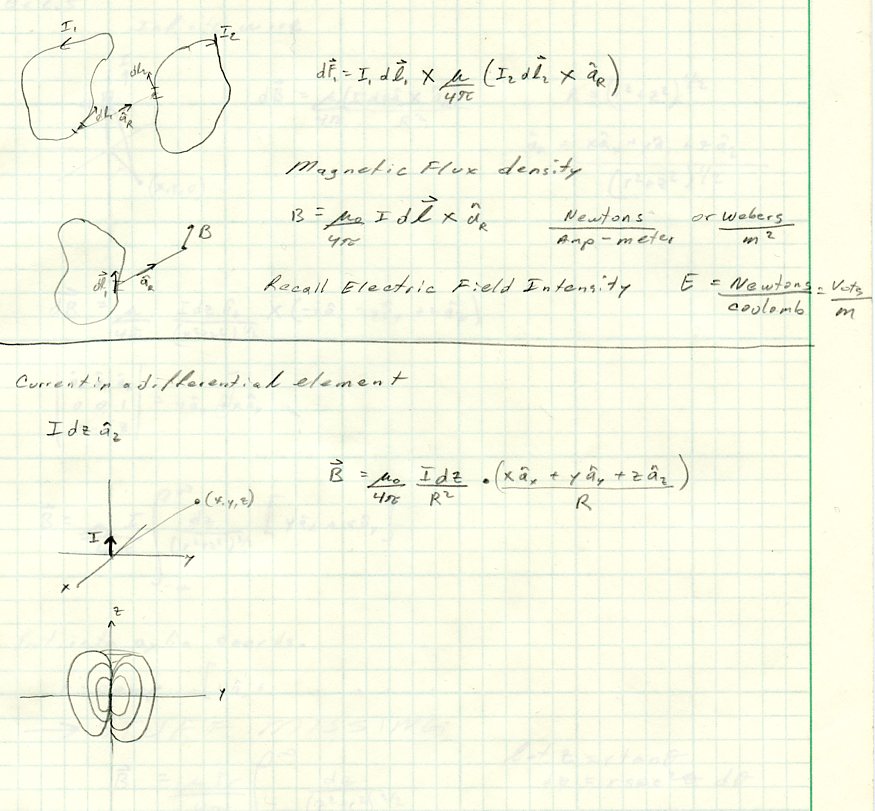 I₁
I₂
dl₂
dl₁ â_R
dF⃗₁ = I₁ dl⃗₁ × μ/4π (I₂ dl⃗₂ × â_R)
Magnetic Flux density
B = μ₀/4π I dl⃗ × â_R Newtons/Amp-meter or Webers/m²
B
dl⃗₁ â_R
Recall Electric Field Intensity E = Newtons/coulomb = Volts/m
Current in a differential element
I dz â_z
B⃗ = μ₀/4π I dz/R² · (xâ_x + yâ_y + zâ_z)/R
(x,y,z)
I
y
x
z
y